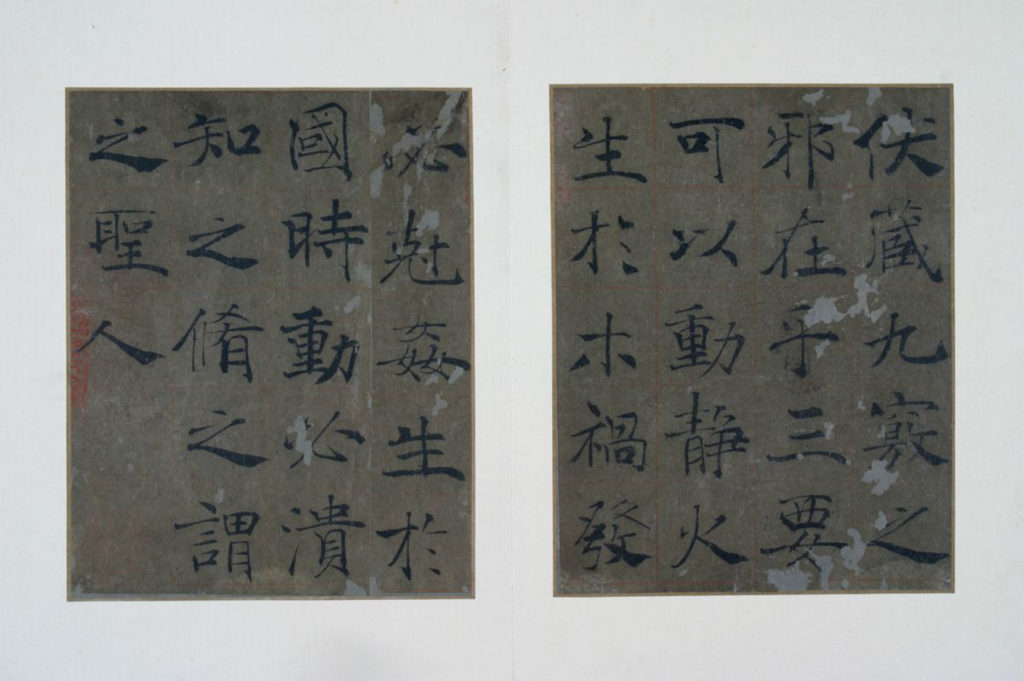 伏藏九竅之
邪在乎三要
可以動静火
生於木禍發
必尅姦生於
國時動必潰
知之脩之謂
之聖人